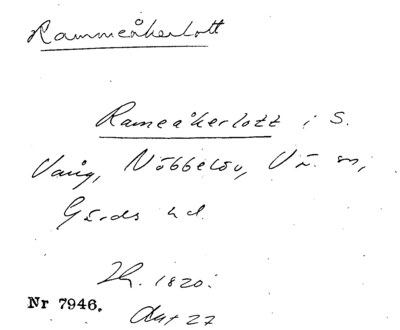 Rammeåkerlott
Rameåkerlott i S.
Vång, Nöbbelöv, V
Gärds hd.
1820.
Nr 7946. Akt 27